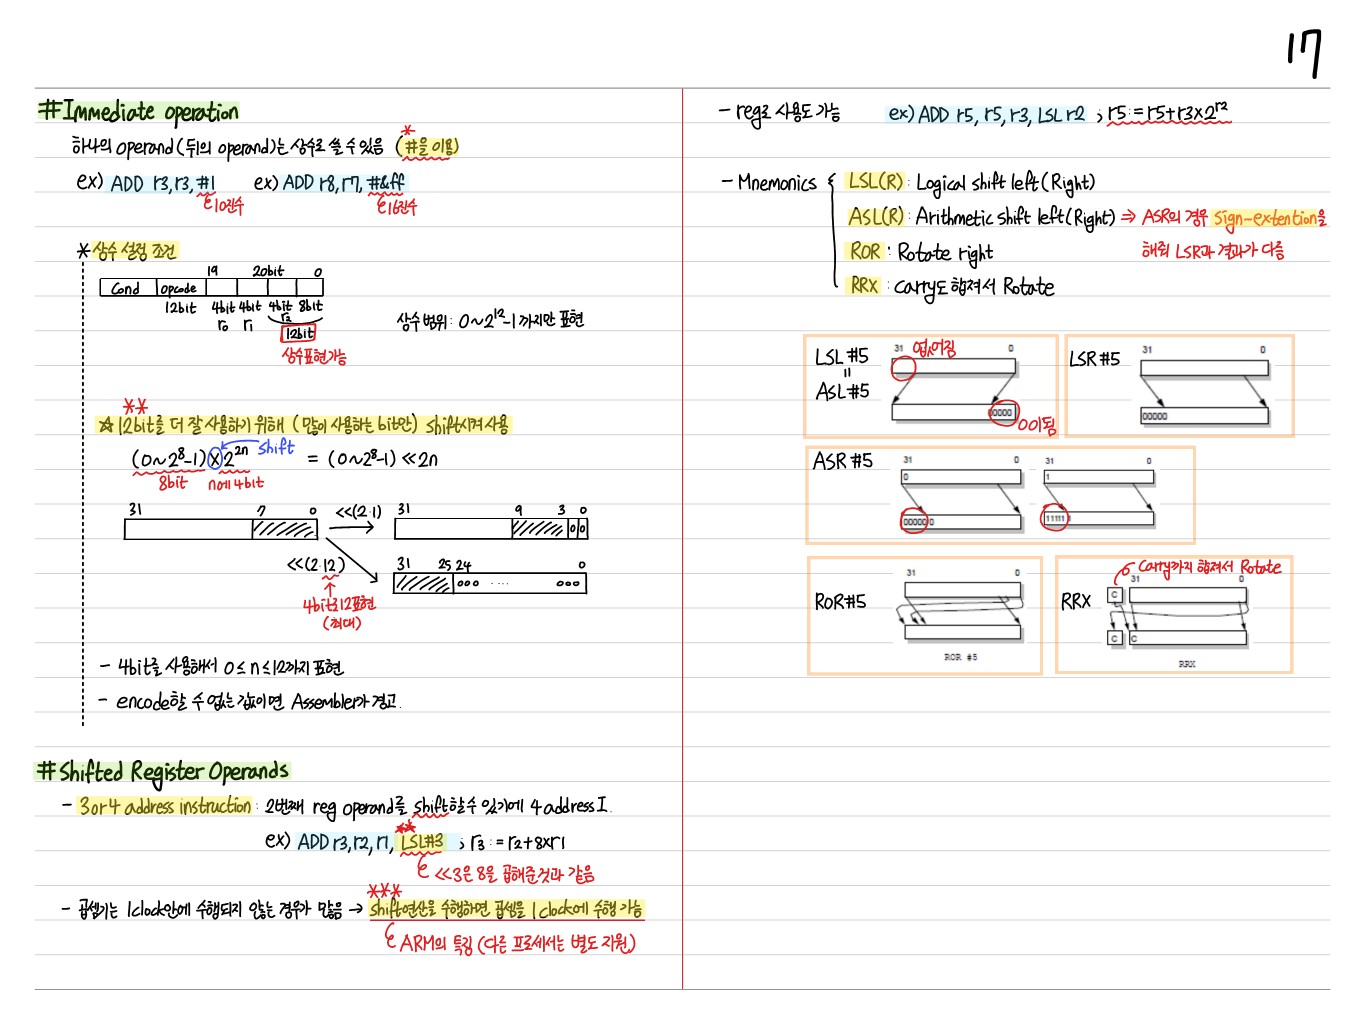 17
#Immediate operation
하나의 operand(뒤의 operand)는 상수로 쓸 수 있음 (#을 이용)
*
ex) ADD r3, r3, #1 ex) ADD r8, r7, #&ff
10진수 16진수
* 상수 설정 조건
19 20bit 0
Cond opcode
12bit 4bit 4bit 4bit 8bit
r0 r1 r2
12bit
상수표현가능
상수 범위: 0~2^12-1 까지만 표현
**
☆12bit를 더 잘 사용하기 위해 (많이 사용하는 bit만) shift시켜 사용
(0~2^8-1)×2^2n = (0~2^8-1) ≪2n
shift
8bit n에 4bit
31 7 0 ≪(2·1) 31 9 3 0
0 0
≪(2·12) 31 25 24 0
000 ···· 000
4bit로 12표현
(최대)
- 4bit를 사용해서 0≤n≤12까지 표현
- encode할 수 없는 값이면 Assembler가 경고.
#Shifted Register Operands
- 3 or 4 address instruction : 2번째 reg operand를 shift할 수 있기에 4 address I.
**
ex) ADD r3, r2, r1, LSL#3 ; r3 := r2+8×r1
≪3은 8을 곱해준것과 같음
***
- 곱셈기는 1clock안에 수행되지 않는 경우가 많음 → shift연산을 수행하면 곱셈을 1clock에 수행 가능
ARM의 특징 (다른 프로세서는 별도 지원)
- reg로 사용도 가능 ex) ADD r5, r5, r3, LSL r2 ; r5:=r5+r3×2^r2
- Mnemonics { LSL(R) : Logical shift left(Right)
ASL(R) : Arithmetic shift left(Right) ⇒ ASR의 경우 sign-extention을
해줘 LSR과 결과가 다음
ROR : Rotate right
RRX : Carry도 합쳐서 Rotate
LSL #5 31 없어짐 0
=
ASL #5
00000 0이됨
LSR #5 31 0
00000
ASR #5 31 0 31 0
0 1
00000 0 11111
ROR#5 31 0
ROR #5
Carry까지 합쳐서 Rotate
RRX C 31 0
C C
RRX